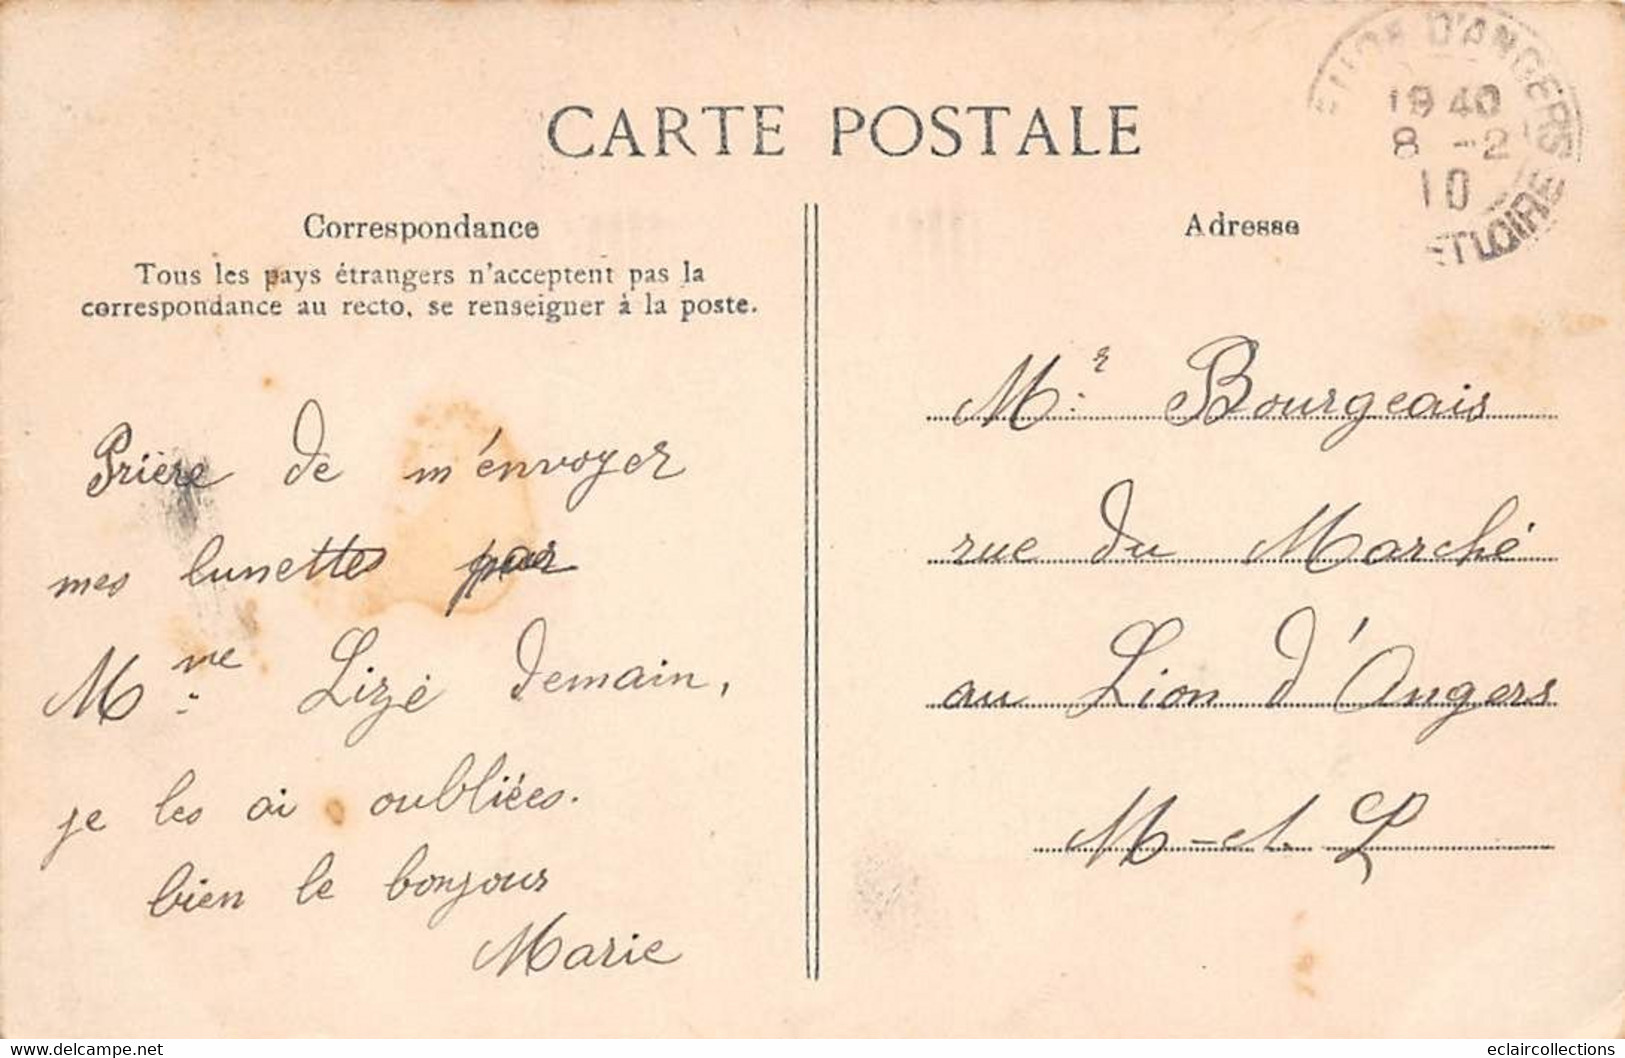 CARTE POSTALE
D'ANGERS
1940
8 -2
10
ET LOIRE
Correspondance
Tous les pays étrangers n'acceptent pas la
correspondance au recto, se renseigner à la poste.
Prière de m'envoyer
mes lunettes par
Mme Lizé demain,
je les ai oubliées.
bien le bonjour
Marie
Adresse
Mr. Bourgeais
rue du Marché
au Lion d'Angers
M-et. L
eclaircollections